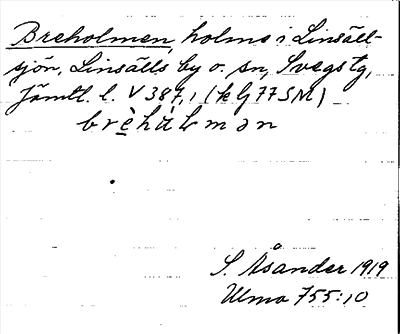 Breholmen, holme i Linsäll-
sjön, Linsälls by o. sn, Svegs tg,
Jämtl. l. V 387, 1 (k G 77 SM)
brèhàlmən
S. Åsander 1919
Ulma 755:10